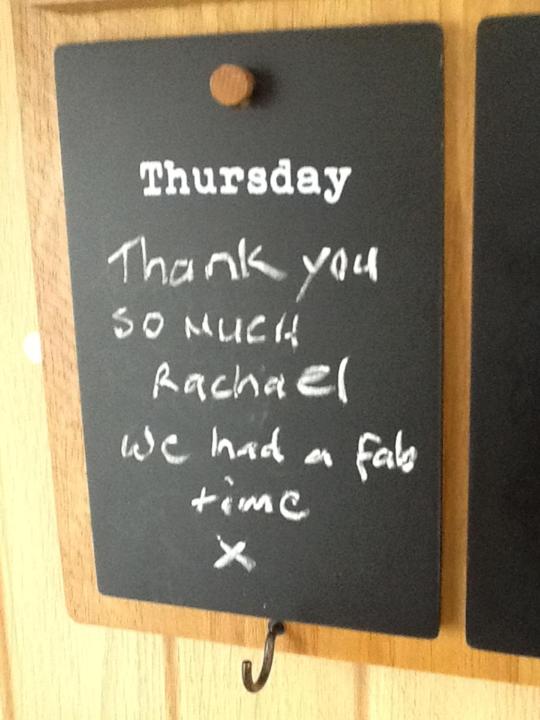 Thursday
Thank you
so much
Rachael
we had a fab
time
x